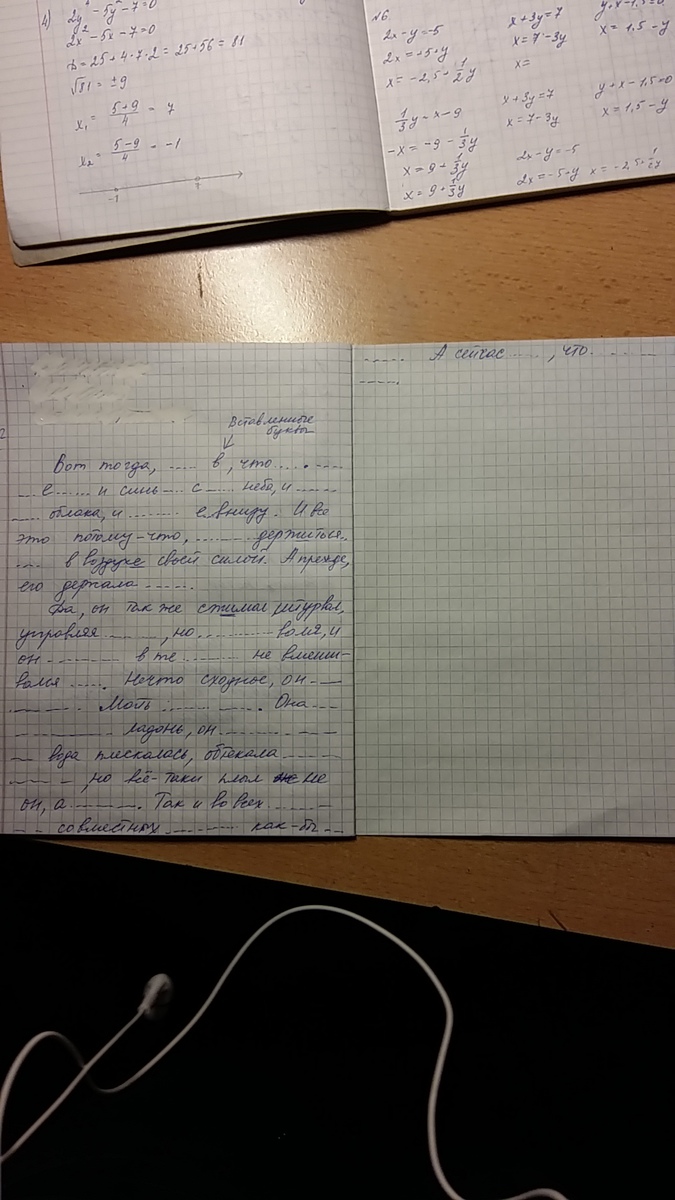 4) 2y⁴ - 5y² - 7 = 0
2x² - 5x - 7 = 0
D = 25 + 4 · 7 · 2 = 25 + 56 = 81
√81 = ±9
x₁ = (5+9)/4 = 7
x₂ = (5-9)/4 = -1
-1 7
№6.
2x - y = -5
2x = +5 + y
x = -2,5 + 1/2 y
x + 3y = 7
x = 7 - 3y
x =
y + x - 1,5 = 0
x = 1,5 - y
1/3 y - x - 9
-x = -9 - 1/3 y
x = 9 + 1/3 y
x = 9 + 1/3 y
x + 3y = 7
x = 7 - 3y
y + x - 1,5 = 0
x = 1,5 - y
2x - y = -5
2x = -5 + y x = -2,5 + 1/2 y
2
Вставленные
буквы
Вот тогда, ..... в, что ........
... е ...... и синь ... с ..... неба, и ......
..... облака, и ........ е внизу. И всё
это потому-что, ......... держиться
.... в воздухе своей силой. А прежде,
его держала ...... .
Да, он так же сжимал штурвал,
управляя ......., но ........... воля, и
он .......... в те ........ не вмеши-
вался ..... . Нечто сходное, он .....
......... Мать .............. Она .....
............ ладонь, он ...........
.... вода плескалась, обтекала .......
........, но всё-таки плыл не
он, а ......... . Так и во всех .......
..... совместных .......... как-бы ....
...... А сейчас ......, что .......
......